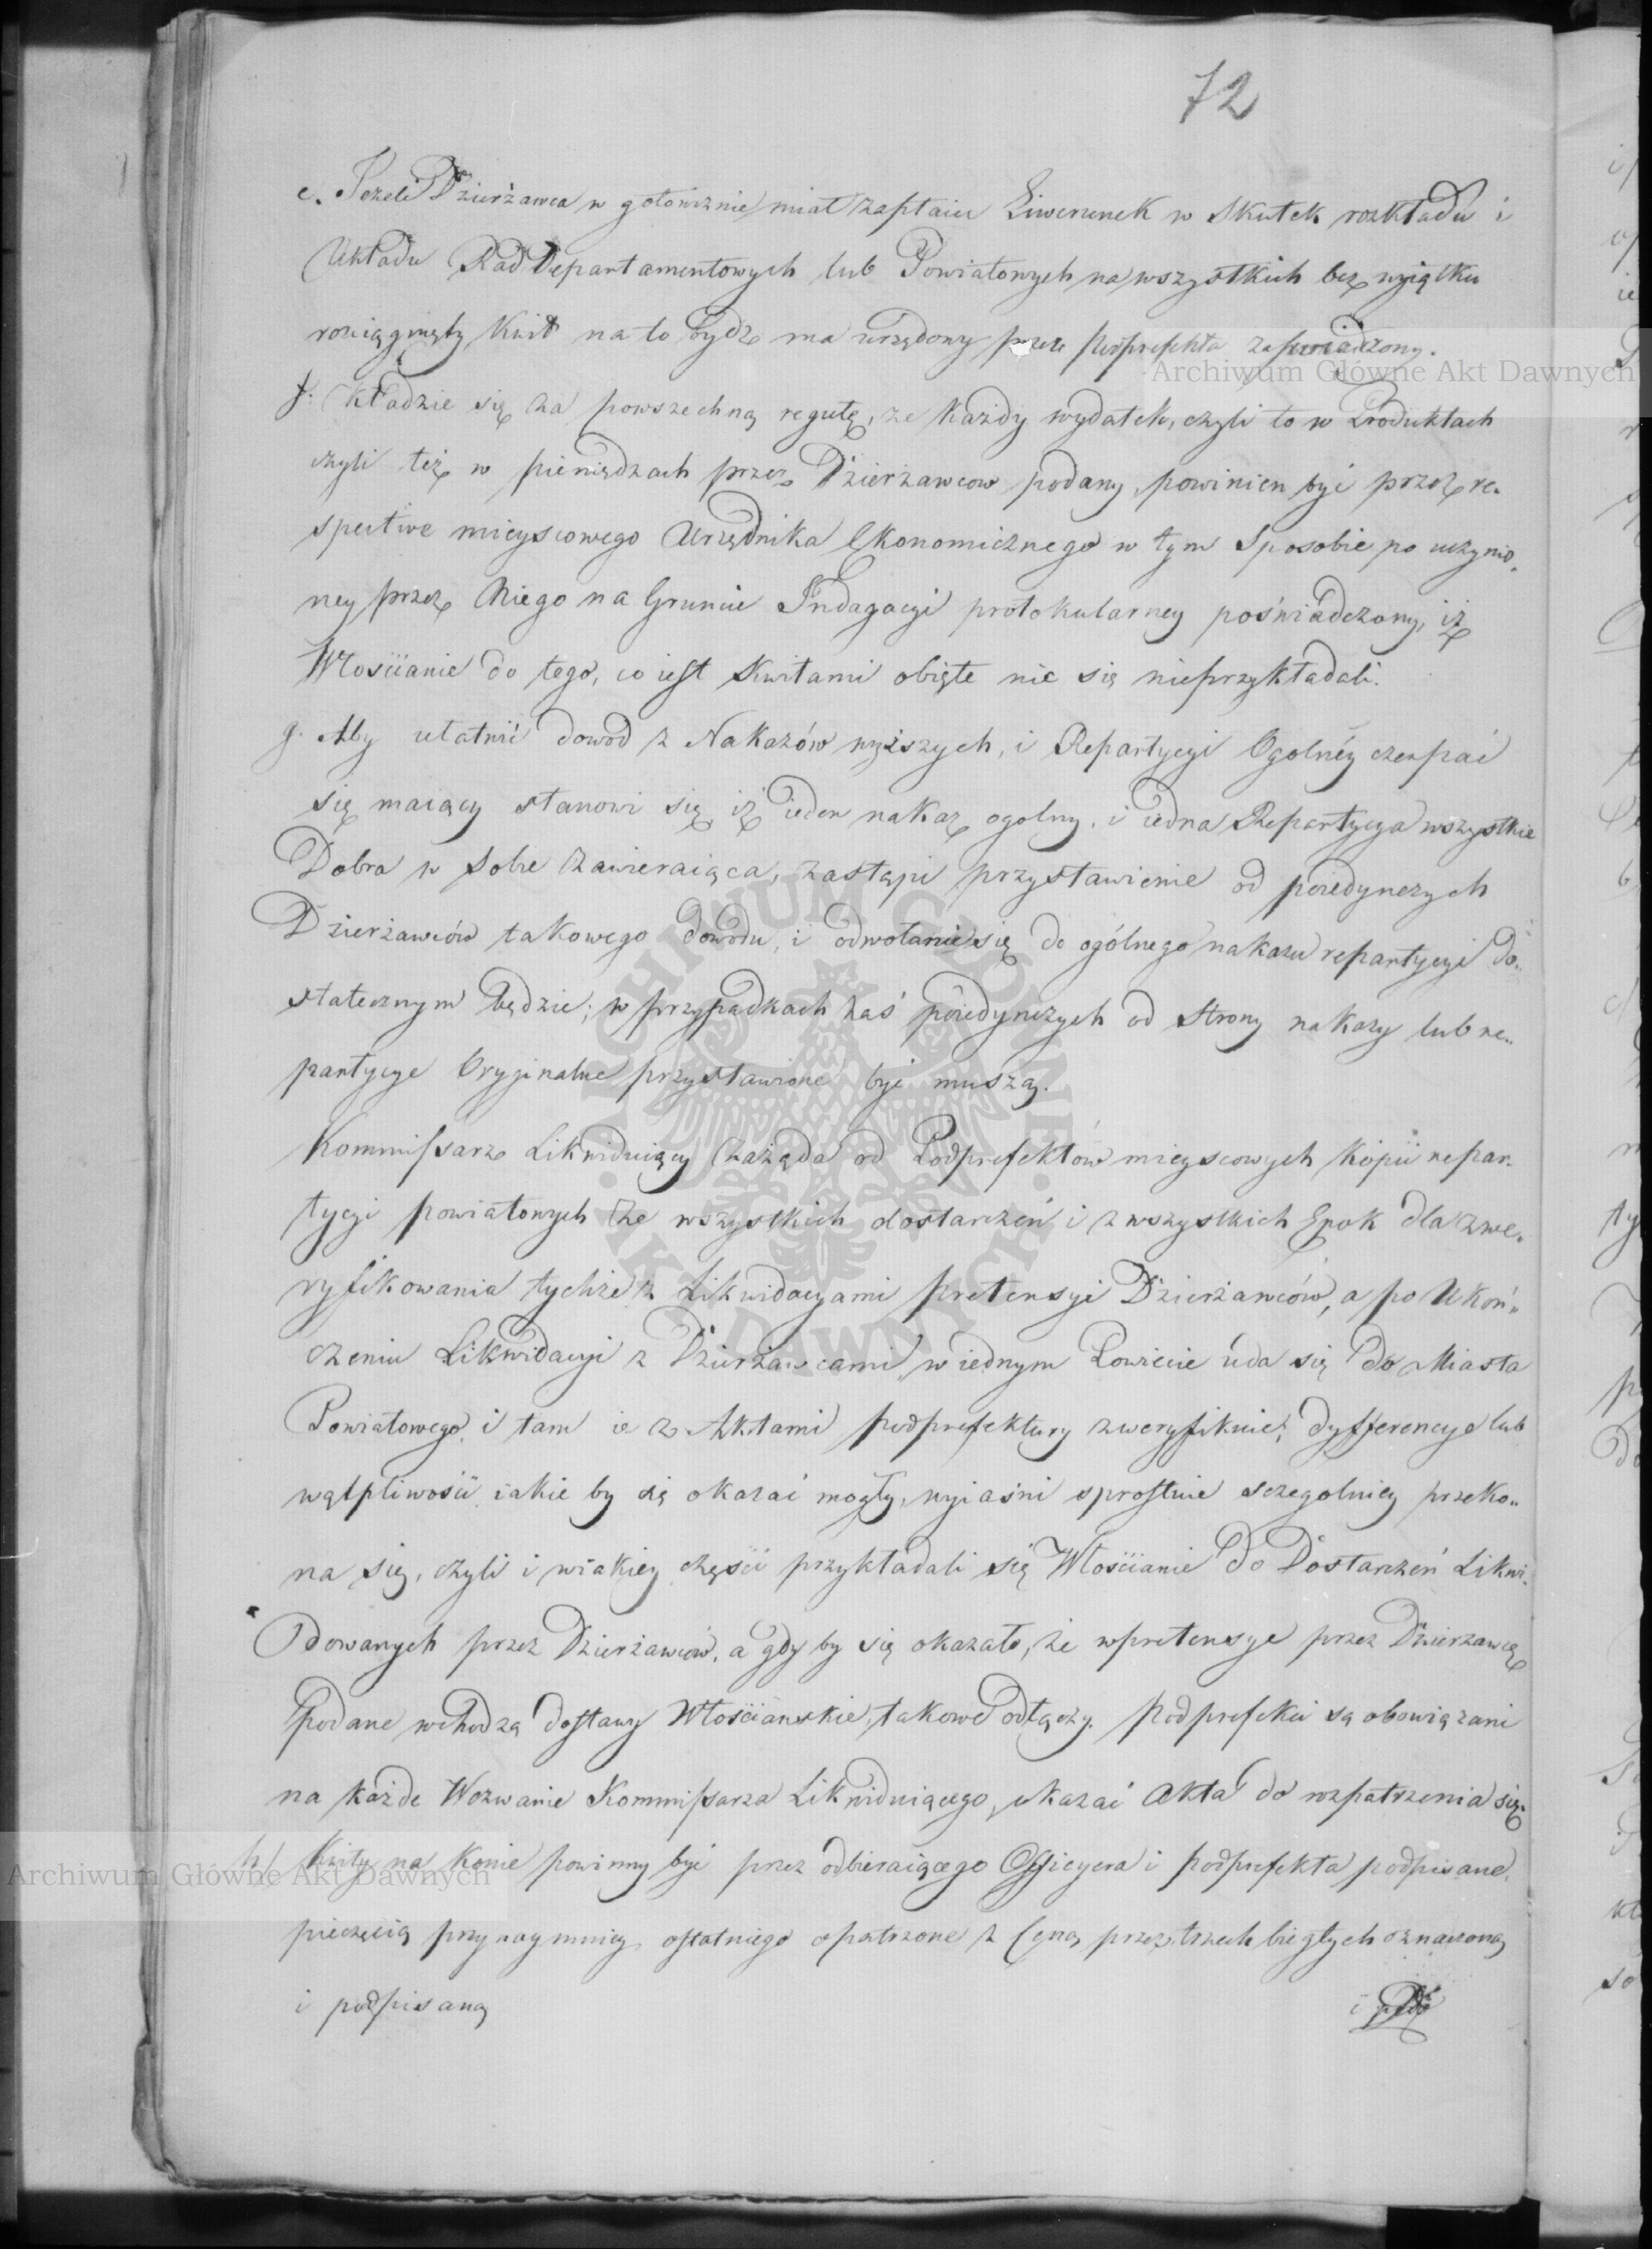 72
e. Jeżeli Dzierżawca w gotowiznie miał zapłaić Liwerunek w Skutek rozkładu i
Układu Rad Departamentowych lub Powiatowych na wszystkich bez wyiątku
rozciągnięty, Kwit na to bydz ma urzędowy przez podprefekta zaświadczony.
f. Kładzie się za powszechną regułę, że każdy wydatek, czyli to w Produktach
czyli też w pieniądzach przez Dzierżawcow podany, powinien być przez re„
spective mieyscowego Urzędnika Ekonomicznego w tym Sposobie po uczynio„
ney przez Niego na Gruncie Indagacyi protokularney poświadczony, iż
Włościanie do tego, co iest Kwitami obięte nic się nieprzykładali.
g. Aby ułatwić dowod z Nakazów wyższych, i Repartycyi Ogolney czerpać
się maiący stanowi się, iż ieden nakaz ogolny, i iedna Repartycya wszystkie
Dobra w Sobie zawieraiąca, zastąpi przystawienie od poiedynczych
Dzierżawców takowego dowodu, i odwołanie się do ogólnego nakazu repartycyi do„
statecznym będzie; w przypadkach zaś poiedynczych od Strony nakazy lub re„
partycye Oryginalne przystawione być muszą.
Kommissarz Likwiduiący zażąda od Podprefektów mieyscowych Kopii repar„
tycyi powiatowych ze wszystkich dostarczeń i z wszystkich Epok dla zwe„
ryfikowania tychże z Likwidacyami pretensyi Dzierżawców, a po Ukoń„
czeniu Likwidacyi z Dzierżawcami w iednym Powiecie uda się do Miasta
Powiatowego i tam ie z Aktami podprefektury zweryfikuie, dyfferencye lub
wątpliwości iakie by się okazać mogły, wyiaśni sprostuie sczegolniey przeko„
na się, czyli i w iakiey części przykładali się Włościanie do Dostarzeń Likwi„
dowanych przez Dzierżawców, a gdy by się okazało, że w pretensye przez Dzierzawcę
podane wchodzą dostawy Włościanskie, takowe odłączy. Podprefekci są obowiązani
na każde Wezwanie Kommissarza Likwiduiącego, ukazać Akta do rozpatrzenia się.
h) Kwity na Konie powinny być przez odbieraiącego Officyera i podprefekta podpisane,
pieczęcią przynaymniey ostatniego opatrzone z Ceną przez trzech biegłych oznaczoną
i podpisaną
Archiwum Główne Akt Dawnych
Archiwum Główne Akt Dawnych
ARCHIWUM GŁÓWNE AKT DAWNYCH